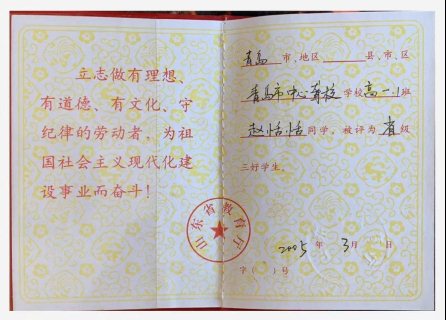 立志做有理想、
有道德、有文化、守
纪律的劳动者，为祖
国社会主义现代化建
设事业而奋斗！
青岛市、地区 县、市、区
青岛市中心学校高一.1班
赵恬恬同学，被评为省级
三好学生。
山东省教育厅
2005年3月 日
字( )号